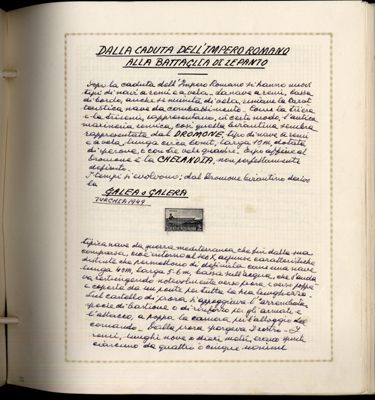 DALLA CADUTA DELL'IMPERO ROMANO
ALLA BATTAGLIA DI LEPANTO
Dopo la caduta dell'Impero Romano si hanno nuovi
tipi di navi a remi e a vela, da nave a remi, bassa
di bordo, anche se munita di vela,
da combattimento. Come la trireme
e la bireme, rappresentano, in certo modo, l'antica
marineria così quella bizantina sembra
rappresentata dal DROMONE, tipo di nave a remi
e a vela, lunga circa 60 mt, larga 10 m, dotata
di sperone, e con vele quadre. Dopo affine al
dromone è la CHELANDIA, non perfettamente
definita.
I tempi si evolvono; dal dromone bizantino deriva
la
GALEA o GALERA
TURCHIA 1949
tipica nave da guerra mediterranea che fin dalla sua
comparsa, cioè intorno al sec. X, assunse caratteristiche
distinte che permettono di definirla come una nave
lunga 40 m, larga 5-6 m, bassa sull'acqua, che
restringendo notevolmente verso prora e verso poppa
e coperta da un ponte per tutta la sua lunghezza.
Sul castello di prora, si appoggiava l'
specie di bastione o di per gli armati e
l'attacco, a poppa la camera per l'alloggio del
comando. Dalla prora sporgeva il rostro. I
remi, lunghi nove o dieci metri, erano spinti
ciascuno da quattro o cinque uomini